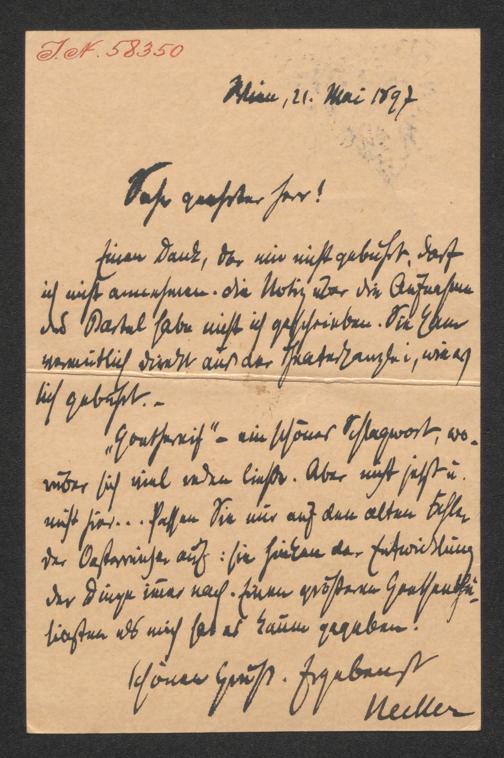 J. N. 58350
Wien, 21. Mai 1897
Sehr geehrter Herr!
Einen Dank, der mir nicht gebührt, darf
ich nicht annehmen. Die Notiz über die Aufnahme
des Bartel habe nicht ich geschrieben. Sie kam
vermutlich direkt aus der Theaterkanzlei, wie es
sich gebührt. –
"Goethereif" – ein schönes Schlagwort, wo-
rüber sich viel reden ließe. Aber nicht jetzt u.
nicht hier... Passen Sie nur auf den alten Fehler
der Oesterreicher auf: sie hinken der Entwicklung
der Dinge immer nach. Einen größeren Goetheenthu-
siasten als mich hat es kaum gegeben.
Schönen Gruß. Ergebenst
Necker